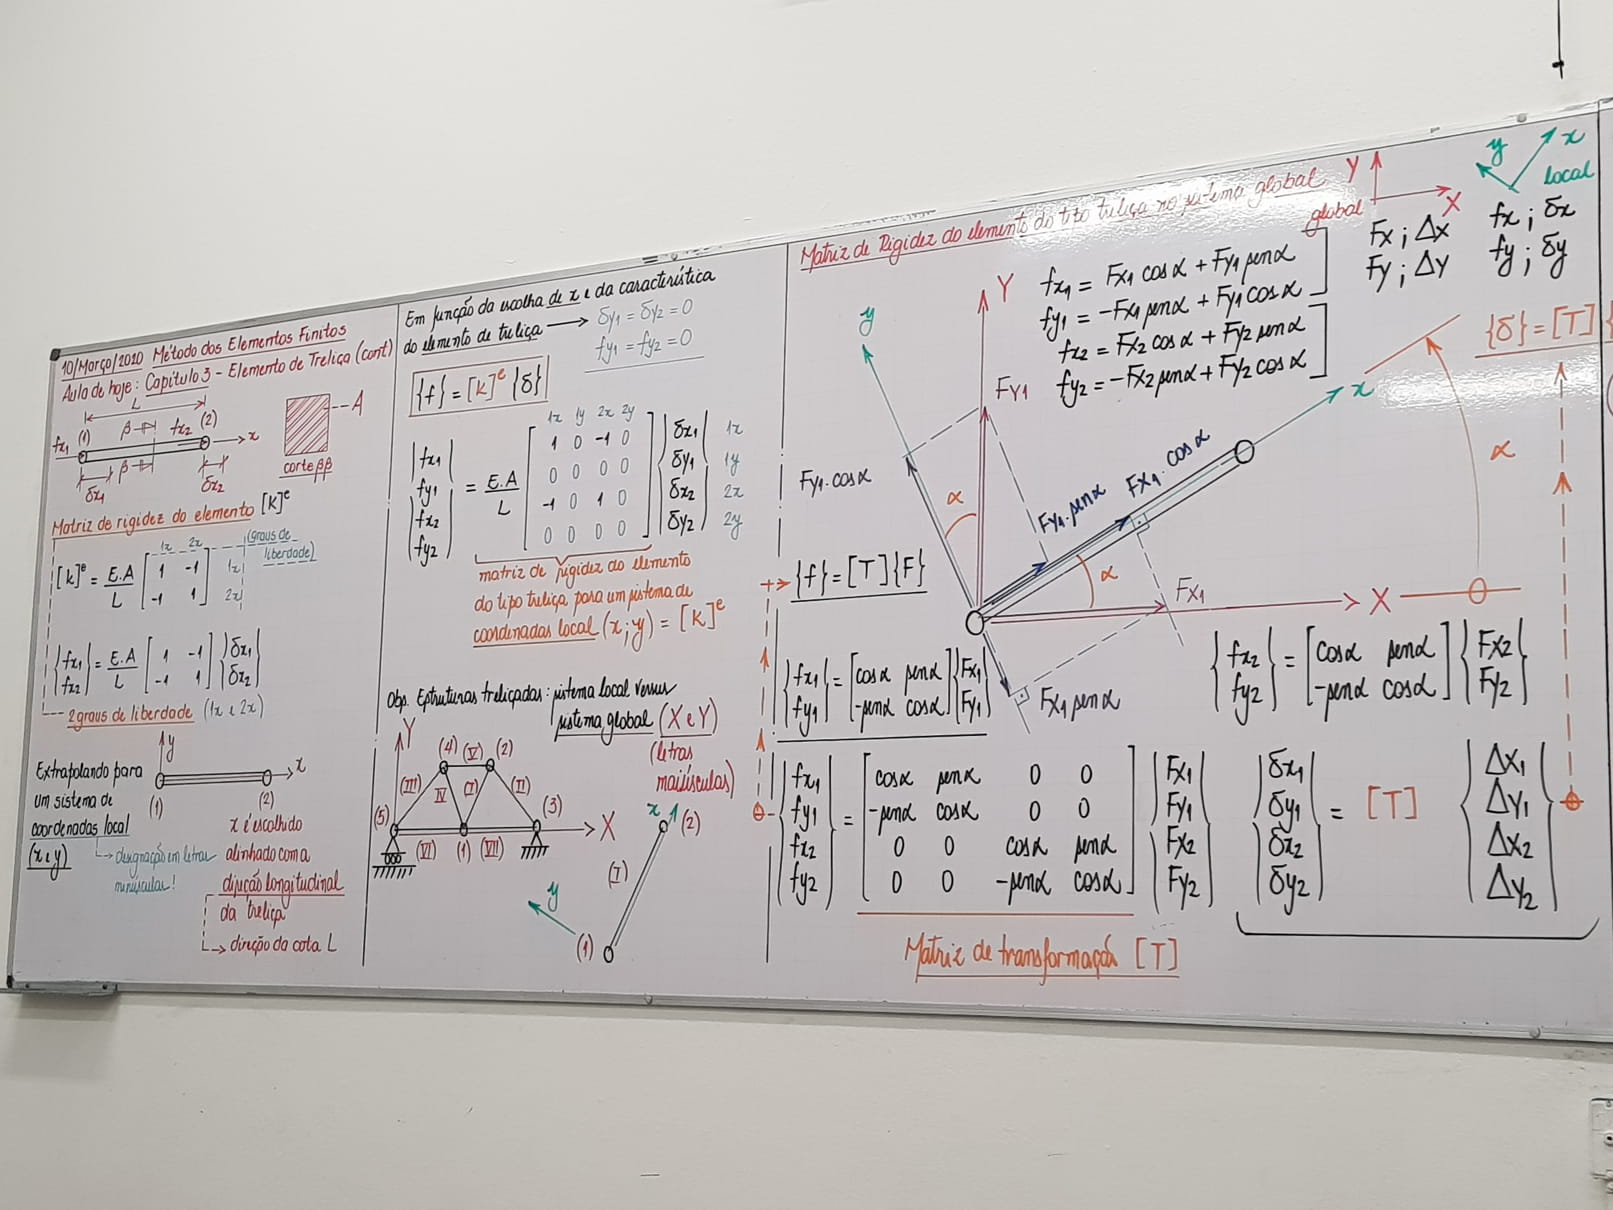 10/Março/2020 Método dos Elementos Finitos
Aula de hoje: Capítulo 3 - Elemento de Treliça (cont)
L
fx1 (1) β fx2 (2) x
β
δx1 δx2
A
corte ββ
Matriz de rigidez do elemento [K]e
1x 2x (graus de liberdade)
[K]e = E.A/L [1 -1; -1 1] 1x 2x
{fx1; fx2} = E.A/L [1 -1; -1 1] {δx1; δx2}
2 graus de liberdade (1x e 2x)
Extrapolando para
um sistema de
coordenadas local
(x e y)
designação em letras
minúsculas!
y
x
(1) (2)
x é escolhido
alinhado com a
direção longitudinal
da treliça
direção da cota L
Em função da escolha de x e da característica
do elemento de treliça → δy1 = δy2 = 0
fy1 = fy2 = 0
{f} = [K]e {δ}
1x 1y 2x 2y
{fx1; fy1; fx2; fy2} = E.A/L [1 0 -1 0; 0 0 0 0; -1 0 1 0; 0 0 0 0] {δx1; δy1; δx2; δy2} 1x 1y 2x 2y
matriz de rigidez do elemento
do tipo treliça para um sistema de
coordenadas local (x;y) = [K]e
Obs. Estruturas treliçadas: sistema local versus
sistema global (X e Y)
(letras
maiúsculas)
Y
(4) (V) (2)
(III) IV (I) (II)
(5) (3) X
(VI) (1) (VII)
x (2)
(I)
y
(1)
Matriz de Rigidez do elemento do tipo treliça no sistema global
Y
X
global
y
x
local
Fx ; Δx fx ; δx
Fy ; ΔY fy ; δy
fx1 = Fx1 cosα + Fy1 senα
fy1 = -Fx1 senα + Fy1 cosα
fx2 = Fx2 cosα + Fy2 senα
fy2 = -Fx2 senα + Fy2 cosα
{δ} = [T] {
Y
y
x
FY1
Fy1.cosα
α
Fy1.senα
Fx1.cosα
α
α
FX1
X
Fx1 senα
{f} = [T]{F}
{fx1; fy1} = [cosα senα; -senα cosα] {Fx1; Fy1}
{fx2; fy2} = [cosα senα; -senα cosα] {Fx2; Fy2}
{fx1; fy1; fx2; fy2} = [cosα senα 0 0; -senα cosα 0 0; 0 0 cosα senα; 0 0 -senα cosα] {Fx1; Fy1; Fx2; Fy2}
Matriz de transformação [T]
{δx1; δy1; δx2; δy2} = [T] {ΔX1; ΔY1; ΔX2; ΔY2}